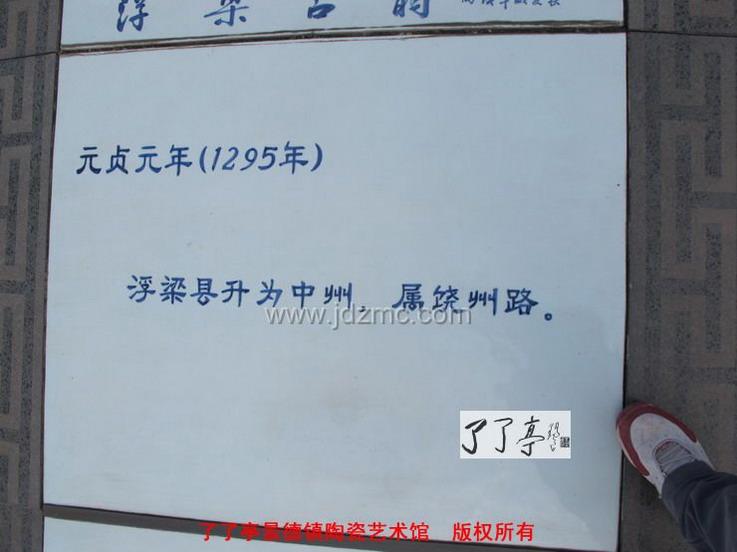 浮梁古韵
元贞元年(1295年)
浮梁县升为中州，属饶州路。
www.jdzmc.com
了了亭
了了亭景德镇陶瓷艺术馆 版权所有